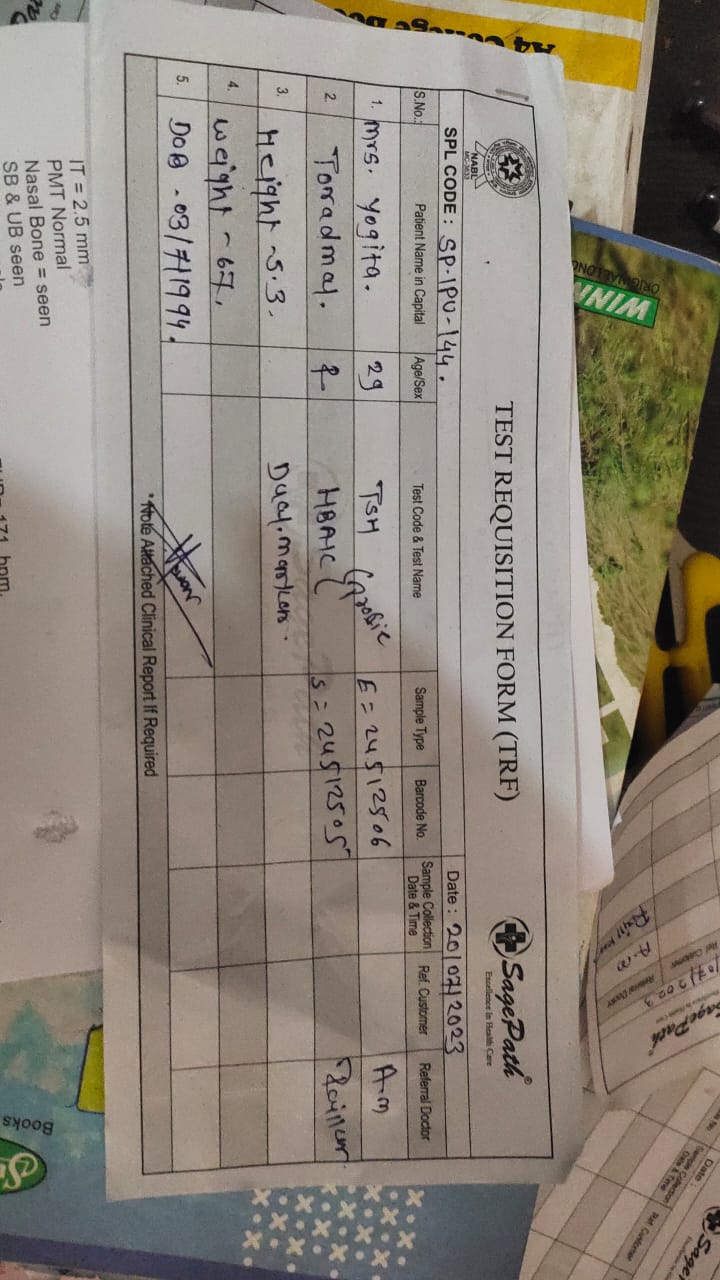 A4 College Boo
ORIGINAL LONG
WINN
NABL
TEST REQUISITION FORM (TRF)
SagePath®
Excellence In Health Care
SPL CODE : SP-IPU-144.
Date : 20/07/2023
S.No.: Patient Name in Capital Age/Sex Test Code & Test Name Sample Type Barcode No. Sample Collection Date & Time Ref. Customer Referral Doctor
1. Mrs. Yogita. 29 TSH E = 24512506 A.M
2 Toradmal. HBA1C S = 24512505
3. Height ~ 5.3. Dual.marker.
4. Weight ~ 67.
5. DOB - 03/7/1994.
*Note Attached Clinical Report If Required
IT = 2.5 mm
PMT Normal
Nasal Bone = seen
SB & UB seen
171 bpm.
Books
SagePath®
Referral Doctor
Ref. Customer
A.M
Date :
Sample Collection
Date & Time
Ref. Customer
Sage